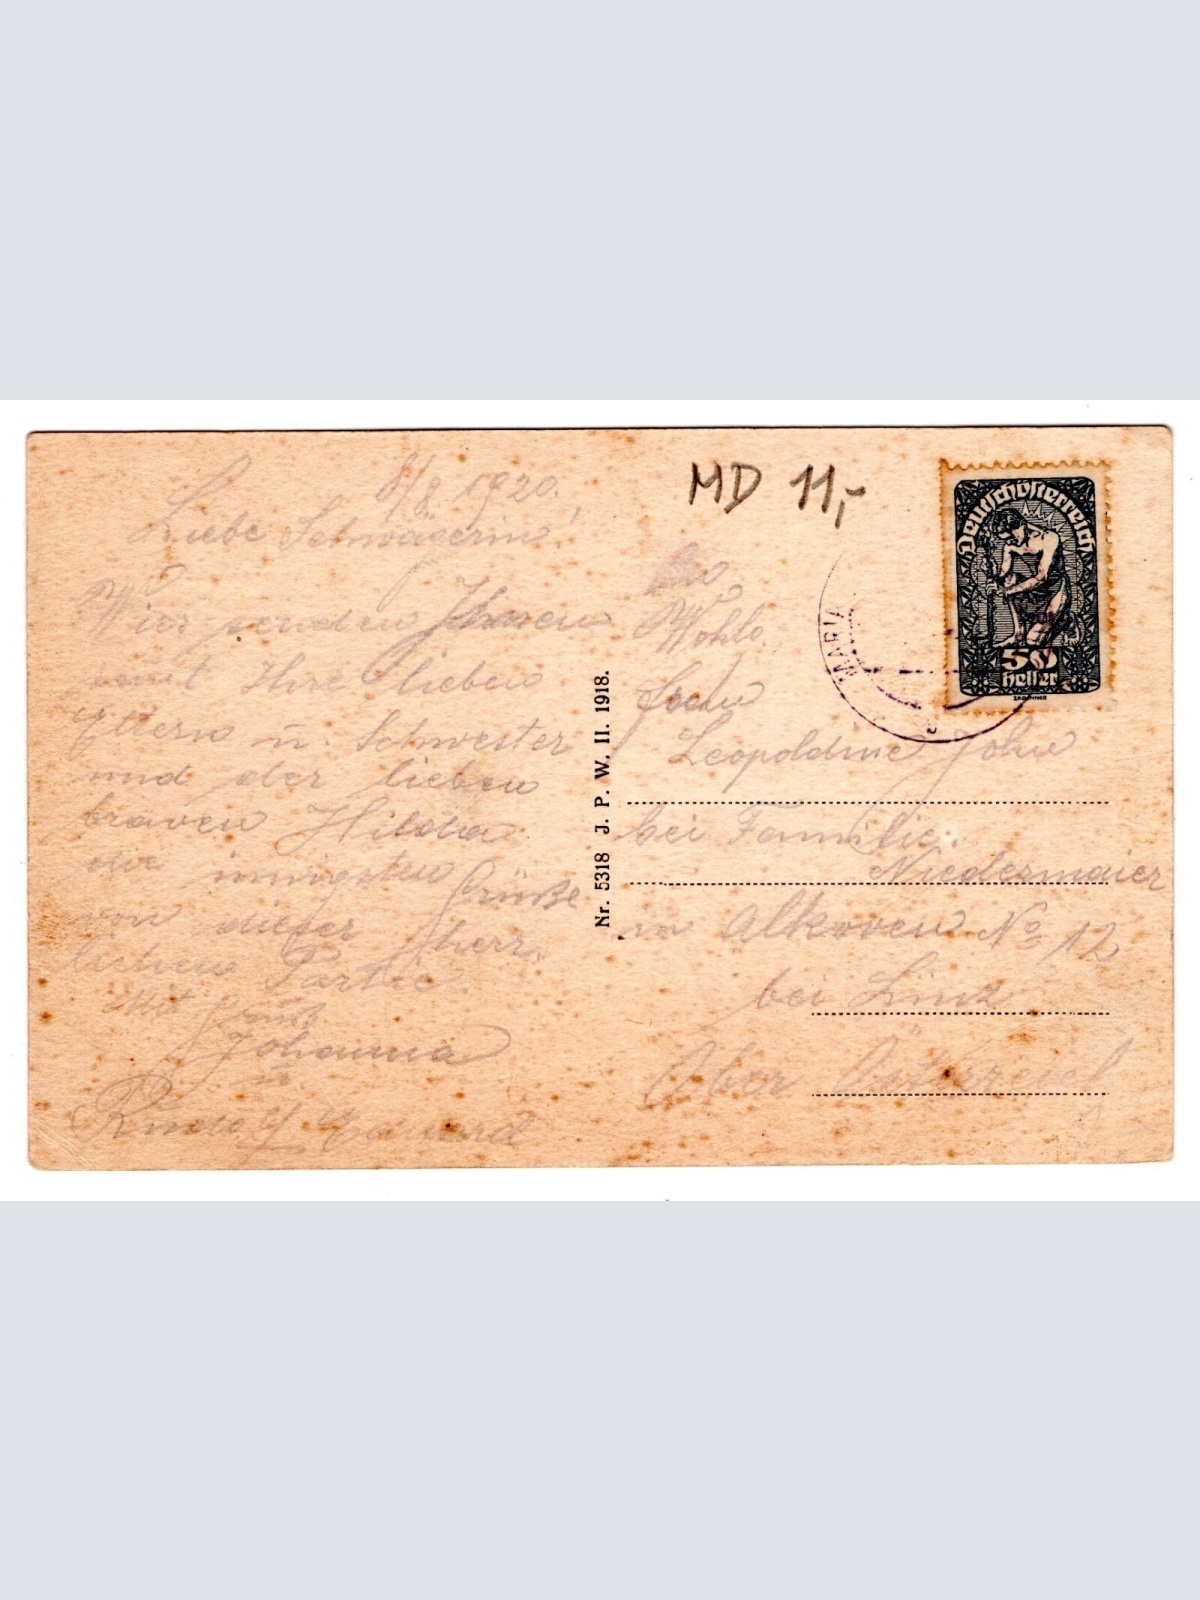 8/8 1920.
Liebe Schwägerin!
Wir senden Ihnen
samt Ihre lieben
Eltern u. Schwester
und der lieben
braven Hilda
die innigsten Grüße
von dieser herr-
lichen Partie.
Mit Gruß
Johanna
u.
Eduard
Nr. 5318 J. P. W. II. 1918.
MD 11,-
Deutschösterreich
50
Heller
MARIA
Wohlb.
Frau
Leopoldine
bei Familie
Niedermaier
in Alkoven No 12
bei Linz
Ober Österreich